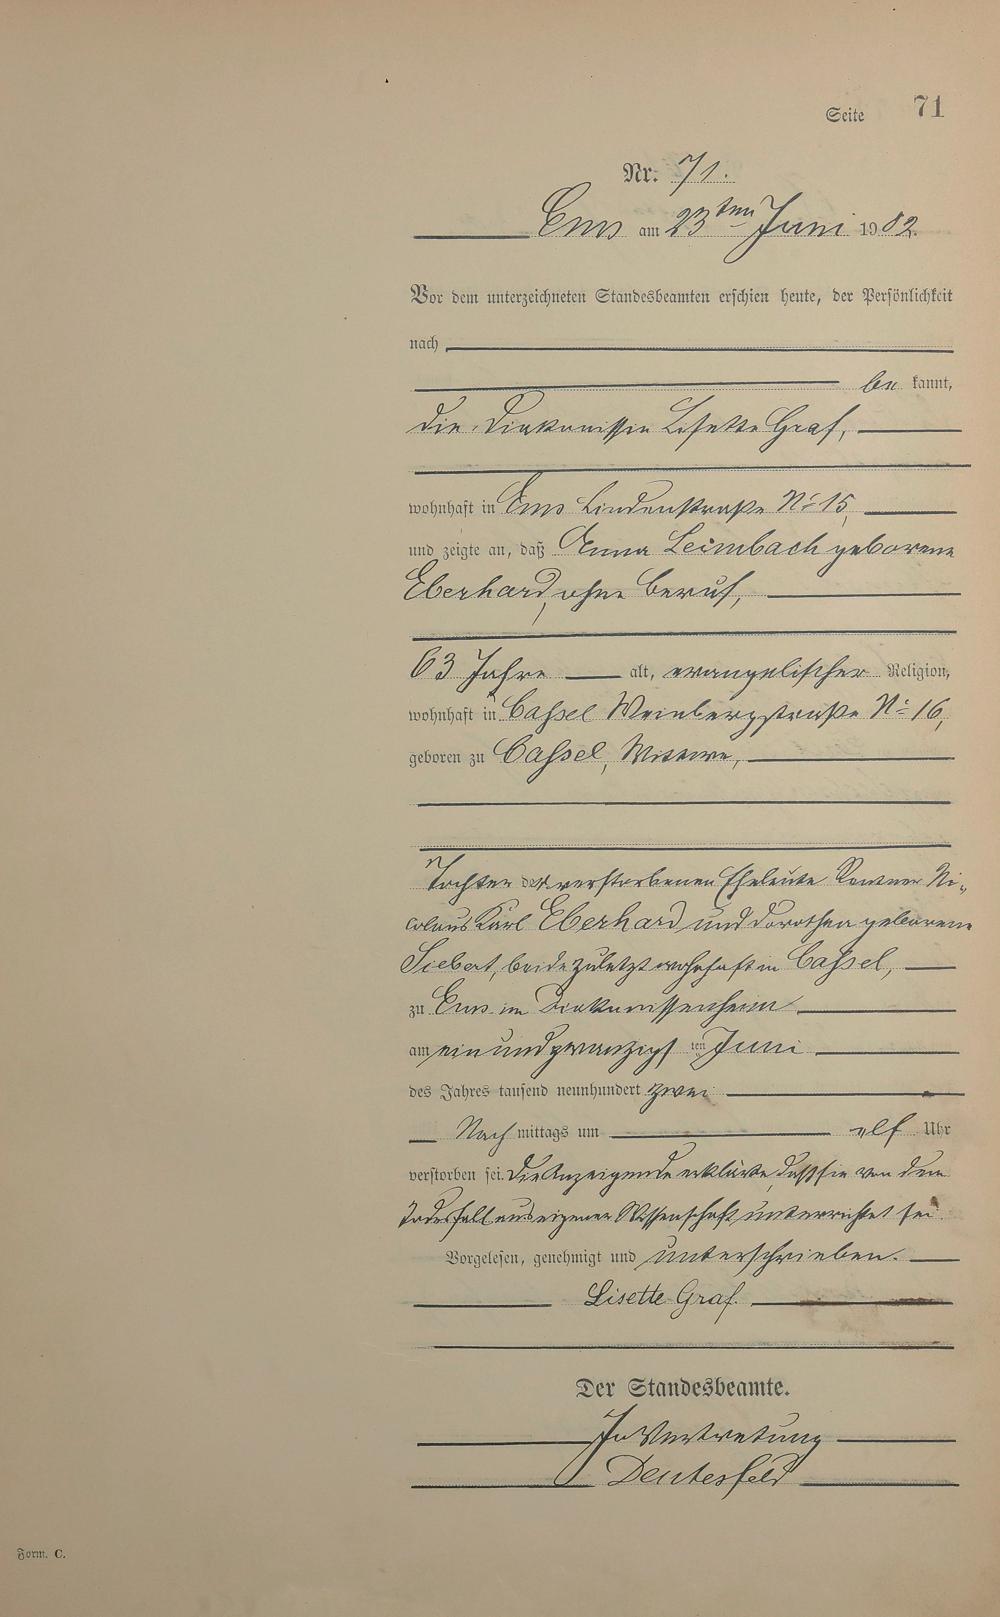 Seite 71
Nr. 71.
Ems am 23ten Juni 1902.
Vor dem unterzeichneten Standesbeamten erschien heute, der Persönlichkeit
nach
be kannt,
die Diakonissin Lisette Graf,
wohnhaft in Ems Lindenstraße No 15,
und zeigte an, daß Anna Leimbach geborene
Eberhard, ohne Beruf,
63 Jahre alt, evangelischer Religion,
wohnhaft in Cassel Weinbergstraße No 16,
geboren zu Cassel, Wittwe,
Tochter der verstorbenen Eheleute Rentner Ni-
colaus Karl Eberhard und Dorothea geborene
Siebert, beide zuletzt wohnhaft in Cassel,
zu Ems im Diakonissenheim
am einundzwanzigsten Juni
des Jahres tausend neunhundert zwei
Nach mittags um elf Uhr
verstorben sei. Die Anzeigende erklärte, daß sie von dem
Todesfall aus eigener Wissenschaft unterrichtet sei.
Vorgelesen, genehmigt und unterschrieben.
Lisette Graf.
Der Standesbeamte.
In Vertretung
Deutesfeld
Form. C.